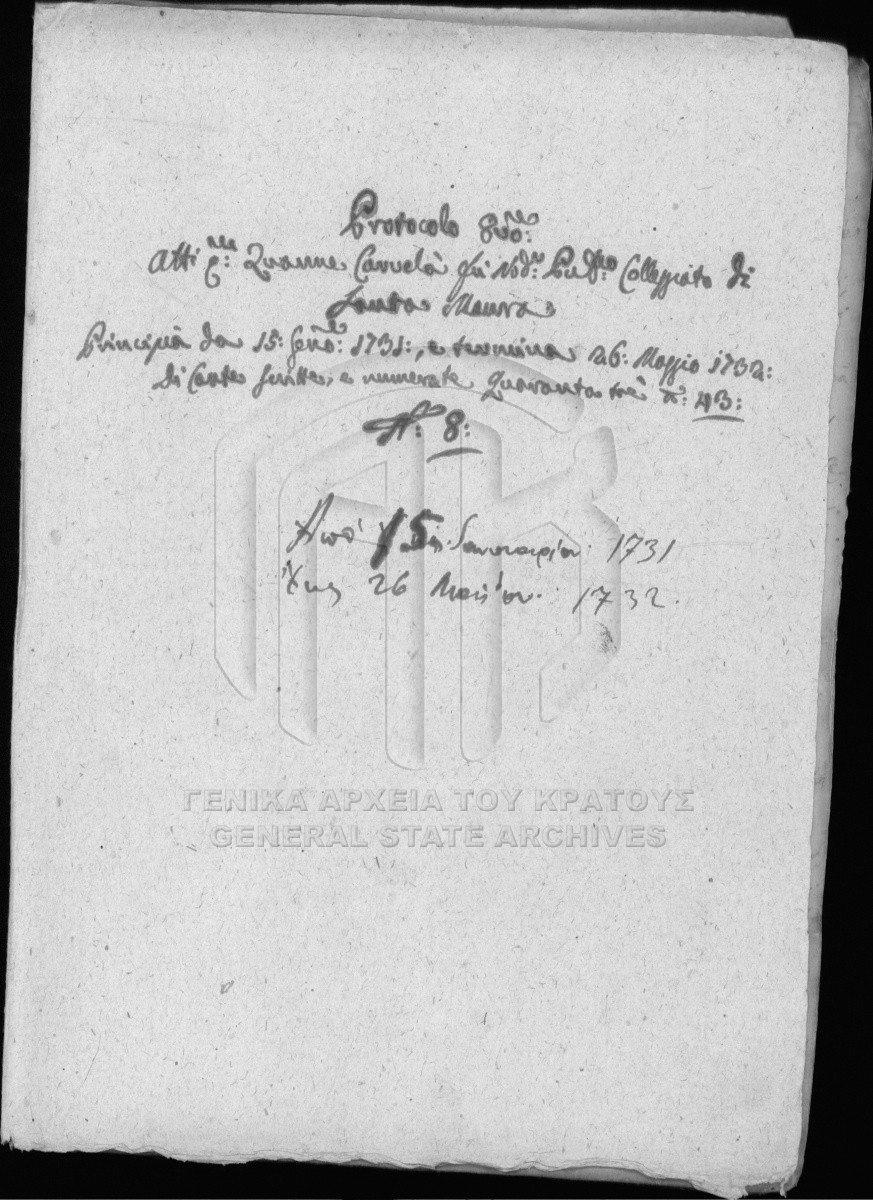 Protocolo 8vo:
Atti q.m Zuanne Carvelà fù Nod.o Pub.co Colleggiato di
Santa Maura
Principia da 15: Gen.o: 1731:, e termina 26: Maggio 1732:
di Carte scritte, e numerate Quaranta trè n.o: 43:
N.o: 8:
Ἀπὸ 15 Ἰανουαρίου 1731
ἕως 26 Μαΐου. 1732.
ΓΕΝΙΚΑ ΑΡΧΕΙΑ ΤΟΥ ΚΡΑΤΟΥΣ
GENERAL STATE ARCHIVES